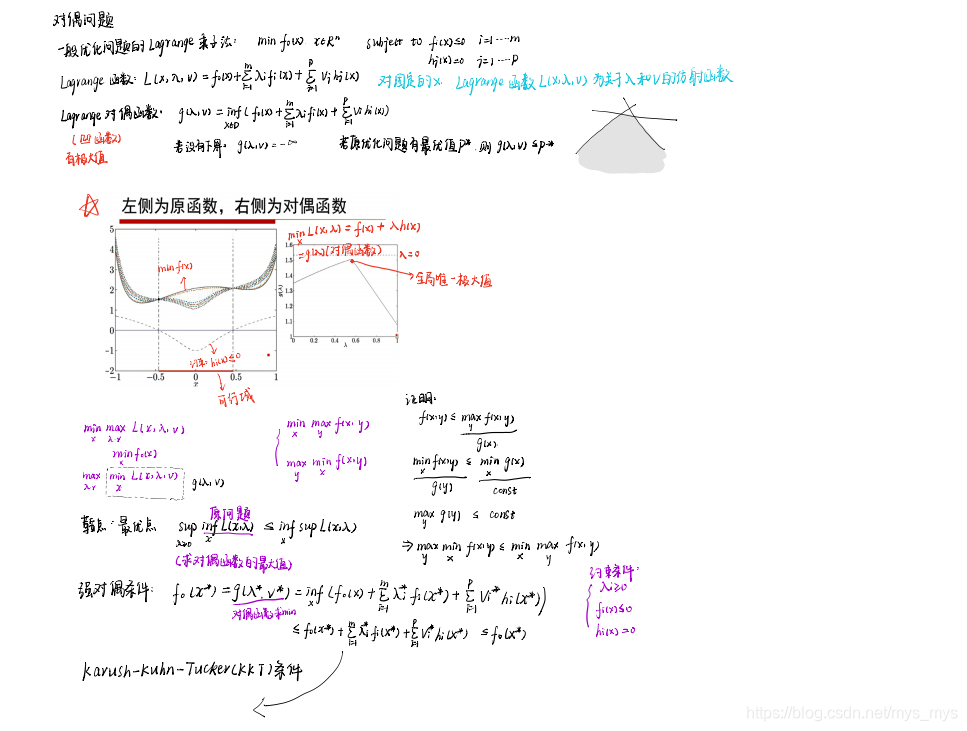 对偶问题
一般优化问题的Lagrange乘子法： min f₀(x) x∈Rⁿ subject to fᵢ(x)≤0 i=1……m
hⱼ(x)=0 j=1……p
Lagrange 函数：L(x,λ,v) = f₀(x)+∑ᵢ₌₁ᵐ λᵢfᵢ(x)+∑ᵢ₌₁ᵖ Vᵢhᵢ(x) 对固定的x, Lagrange 函数 L(x,λ,v) 为关于λ和v的仿射函数
Lagrange 对偶函数： g(λ,v) = inf x∈D ( f₀(x)+∑ᵢ₌₁ᵐ λᵢfᵢ(x)+∑ᵢ₌₁ᵖ Vᵢhᵢ(x))
(凹函数)
有极大值
若没有下界, g(λ,v)=-∞ 若原优化问题有最优值p*, 则 g(λ,v)≤p*
左侧为原函数，右侧为对偶函数
min x L(x,λ) = f(x) + λh(x)
=g(λ)(对偶函数) λ=0
全局唯一极大值
min f(x)
约束: hᵢ(x)≤0
可行域
5
4
3
2
1
0
-1
-2
-1 -0.5 0 0.5 1
x
1.6
1.5
1.4
1.3
1.2
1.1
1
g(λ)
0 0.2 0.4 0.6 0.8 1
λ
min x max λ,v L(x,λ,v)
min x f₀(x)
max λ,v min x L(x,λ,v) g(λ,v)
min x max y f(x,y)
max y min x f(x,y)
证明:
f(x,y) ≤ max y f(x,y)
g(x)
min x f(x,y) ≤ min x g(x)
g(y) const
max y g(y) ≤ const
⇒ max y min x f(x,y) ≤ min x max y f(x,y)
原问题
鞍点：最优点 sup λ≥0 inf x L(x,λ) ≤ inf x sup L(x,λ)
(求对偶函数的最大值)
强对偶条件： f₀(x*) = g(λ*,v*) = inf x (f₀(x)+∑ᵢ₌₁ᵐ λᵢ* fᵢ(x*) + ∑ᵢ₌₁ᵖ Vᵢ* hᵢ(x*))
对偶函数求min
≤ f₀(x*)+∑ᵢ₌₁ᵐ λᵢ* fᵢ(x*)+∑ᵢ₌₁ᵖ Vᵢ* hᵢ(x*) ≤ f₀(x*)
约束条件:
λᵢ≥0
fᵢ(x)≤0
hᵢ(x)=0
Karush-Kuhn-Tucker(KKT)条件
https://blog.csdn.net/mys_mys